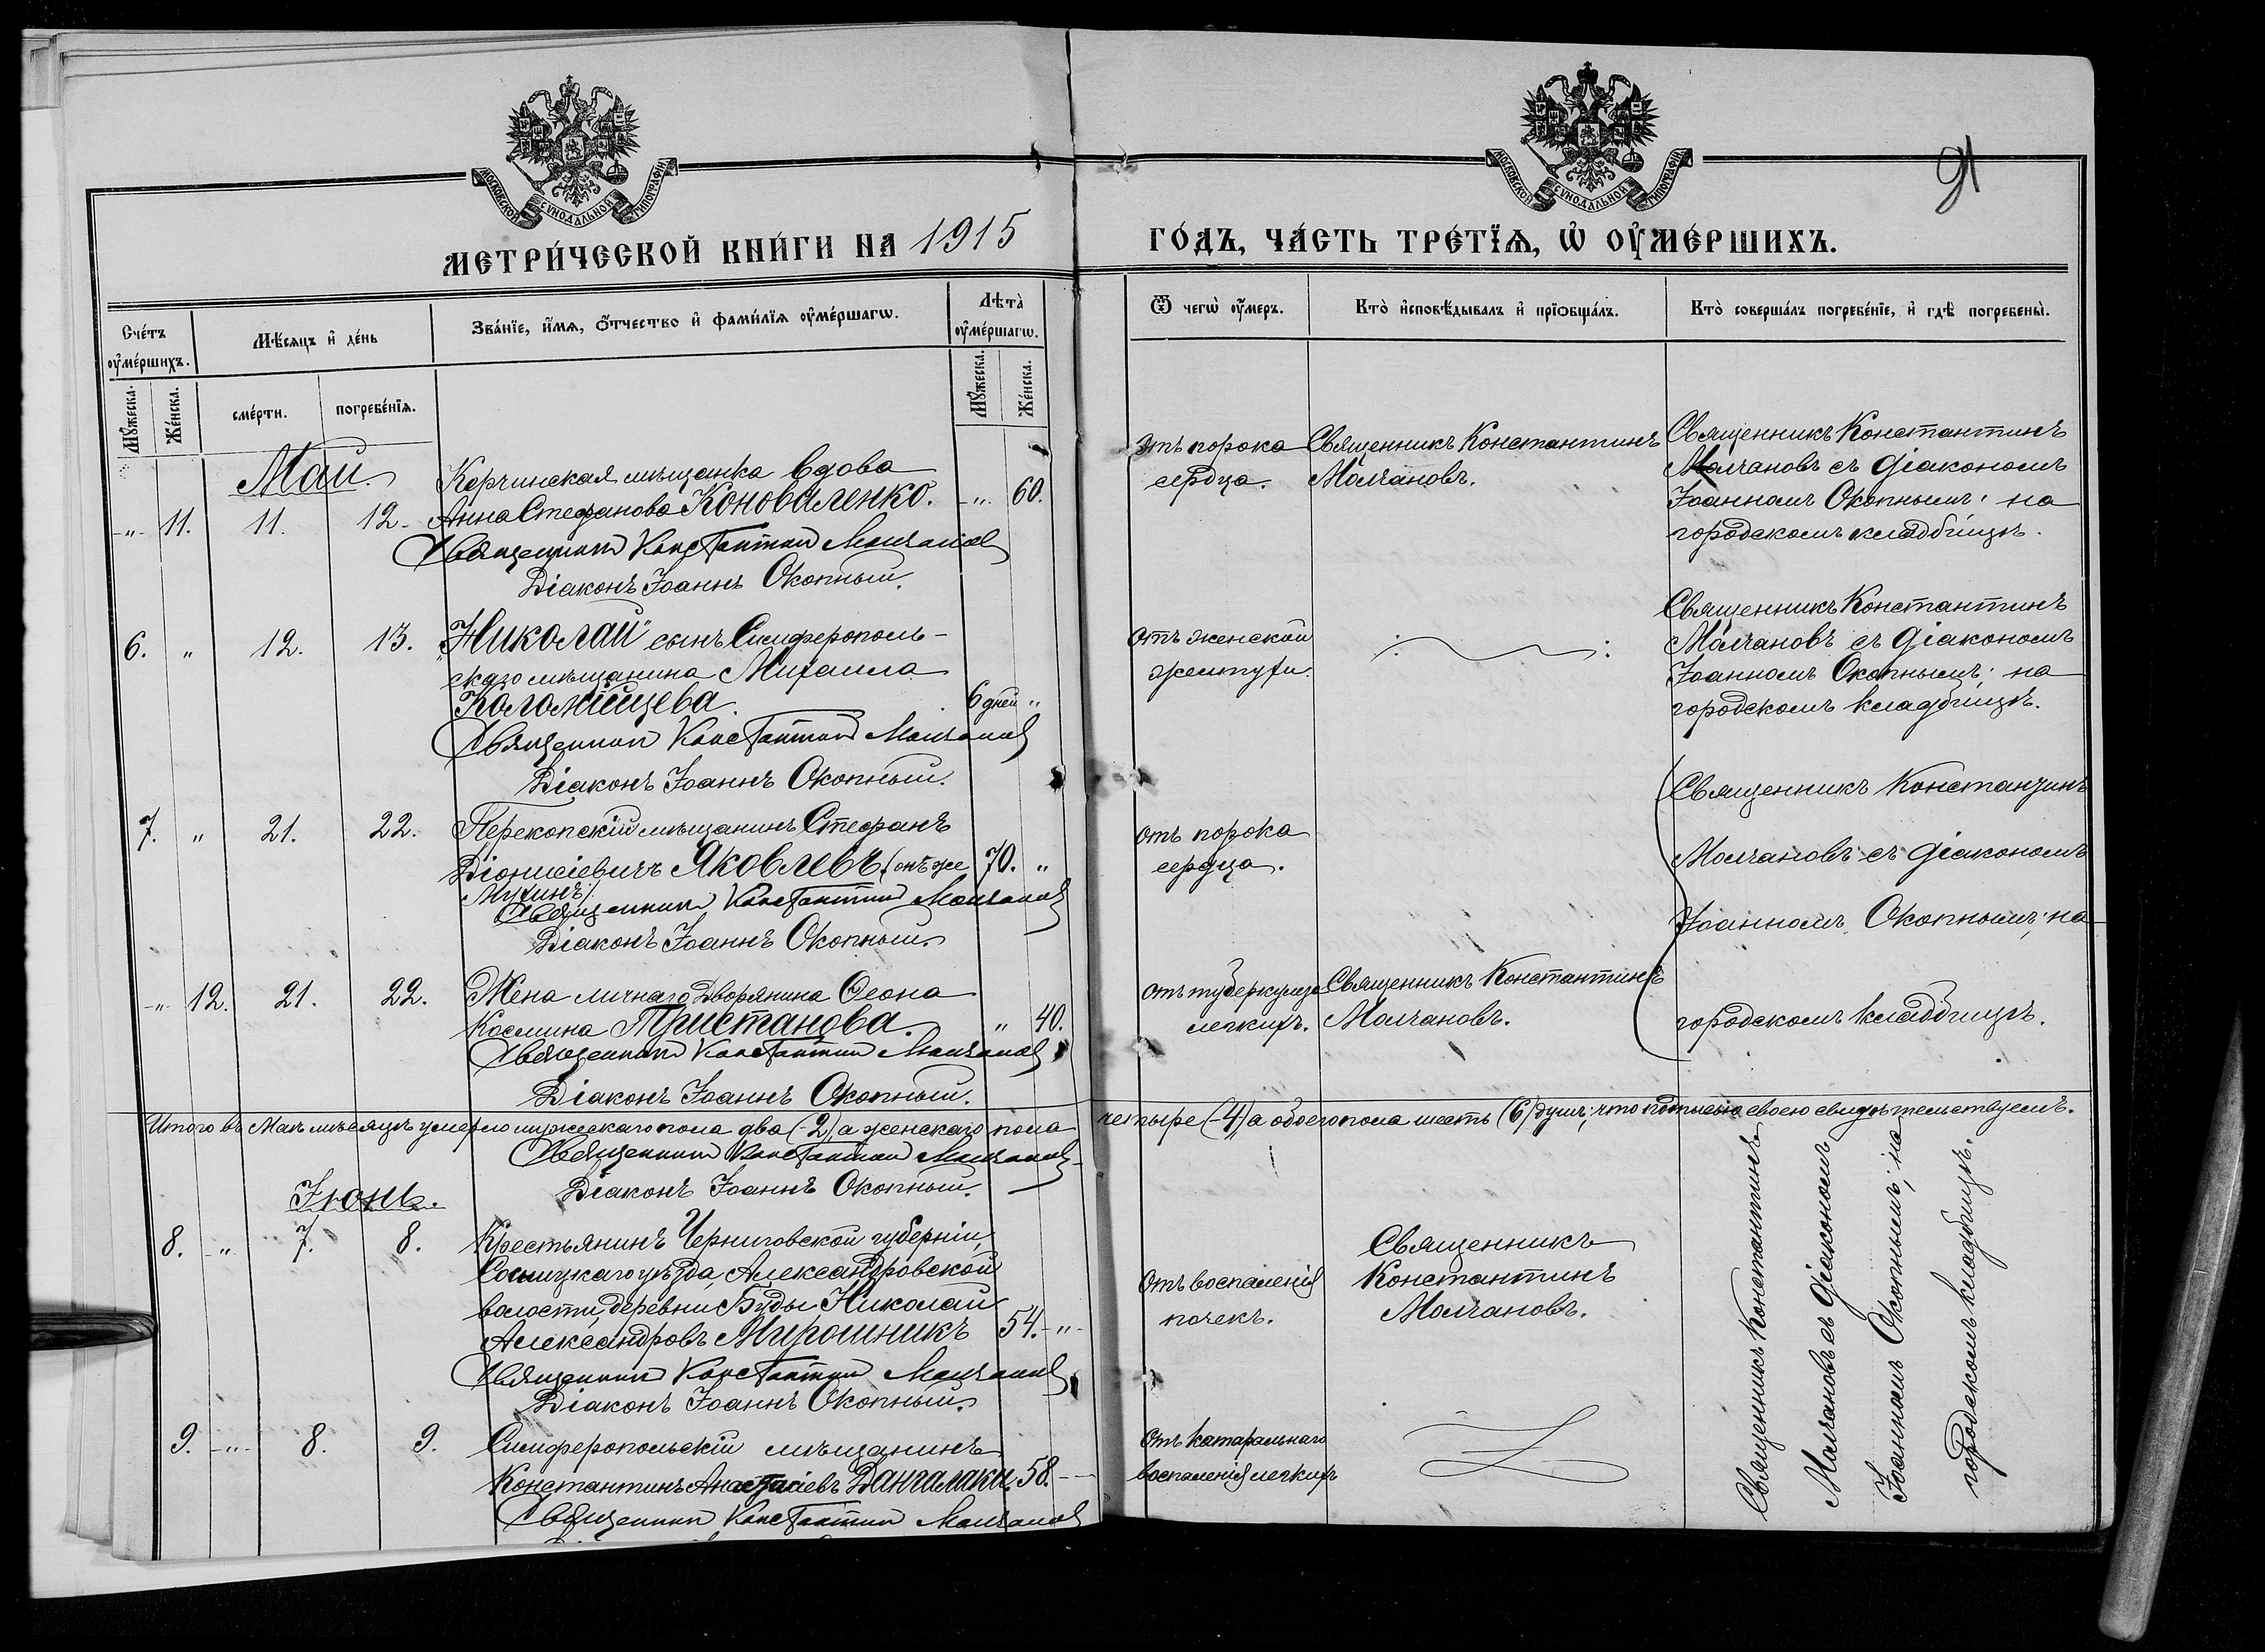 МОСКОВСКОЙ СѴНОДАЛЬНОЙ ТИПОГРАФІИ
МОСКОВСКОЙ СѴНОДАЛЬНОЙ ТИПОГРАФІИ
91
МЕТРИ́ЧЕСКОЙ КНИ́ГИ НА 1915
ГО́ДЪ, ЧА́СТЬ ТРЕ́ТЇѦ, Ѡ҆ ОУ҆МЕ́РШИХЪ.
Сче́тъ оу҆ме́ршихъ.
Мꙋ́жеска.
Же́нска.
Мѣ́сяцъ и҆ де́нь
сме́рти.
погребе́нїѧ.
Зва́нїе, и҆́мѧ, ѻ҆́тчество и҆ фами́лїѧ оу҆ме́ршагѡ.
Лѣта̀ оу҆ме́ршагѡ.
Мꙋ́жеска.
Же́нска.
Ѿ чегѡ̀ оу҆́меръ.
Кто̀ и҆сповѣ́дывалъ и҆ прїѡбща́лъ.
Кто̀ соверша́лъ погребе́нїе, и҆ гдѣ̀ погребены̀.
Май.
-„- 11. 11. 12. Керчинская мѣщанка вдова
Анна Стефанова Коноваленко. -„- 60.
Священникъ Константинъ Молчановъ
Діаконъ Іоаннъ Окопный.
отъ порока
сердца.
Священникъ Константинъ
Молчановъ.
Священникъ Константинъ
Молчановъ съ діакономъ
Іоанномъ Окопнымъ; на
городскомъ кладбищѣ.
6. „ 12. 13. Николай сынъ Симферополь-
скаго мѣщанина Михаила
Коломійцева. 6 дней „
Священникъ Константинъ Молчановъ
Діаконъ Іоаннъ Окопный.
отъ женской
желтухи.
Священникъ Константинъ
Молчановъ съ діакономъ
Іоанномъ Окопнымъ; на
городскомъ кладбищѣ.
7. „ 21. 22. Перекопскій мѣщанинъ Стефанъ
Діонисіевичъ Яковлевъ (онъ же 70. „
Мухинъ)
Священникъ Константинъ Молчановъ
Діаконъ Іоаннъ Окопный.
отъ порока
сердца.
Священникъ Константинъ
Молчановъ съ діакономъ
Іоанномъ Окопнымъ; на
городскомъ кладбищѣ.
-„- 12. 21. 22. Жена личнаго Дворянина Ѳеона
Космина Тристанова. „ 40.
Священникъ Константинъ Молчановъ
Діаконъ Іоаннъ Окопный.
отъ туберкулеза
легкихъ.
Священникъ Константинъ
Молчановъ.
Итого въ Маѣ мѣсяцѣ умерло мужскаго пола два (-2), а женскаго пола четыре (-4), а обоего пола шесть (6) душъ; что подписью своею свидѣтельствуемъ.
Священникъ Константинъ Молчановъ
Діаконъ Іоаннъ Окопный.
Іюнь.
8. -„- 7. 8. Крестьянинъ Черниговской губерніи,
Сосницкаго уѣзда, Александровской
волости, деревни Буды Николай
Александровъ Мирошникъ 54. -„-
Священникъ Константинъ Молчановъ
Діаконъ Іоаннъ Окопный.
отъ воспаленія
почекъ.
Священникъ
Константинъ
Молчановъ.
9. -„- 8. 9. Симферопольскій мѣщанинъ
Константинъ Анастасіевъ Вангалаки. 58. --
Священникъ Константинъ Молчановъ
отъ катаральнаго
воспаленія легкихъ
Священникъ Константинъ
Молчановъ съ діакономъ
Іоанномъ Окопнымъ; на
городскомъ кладбищѣ.